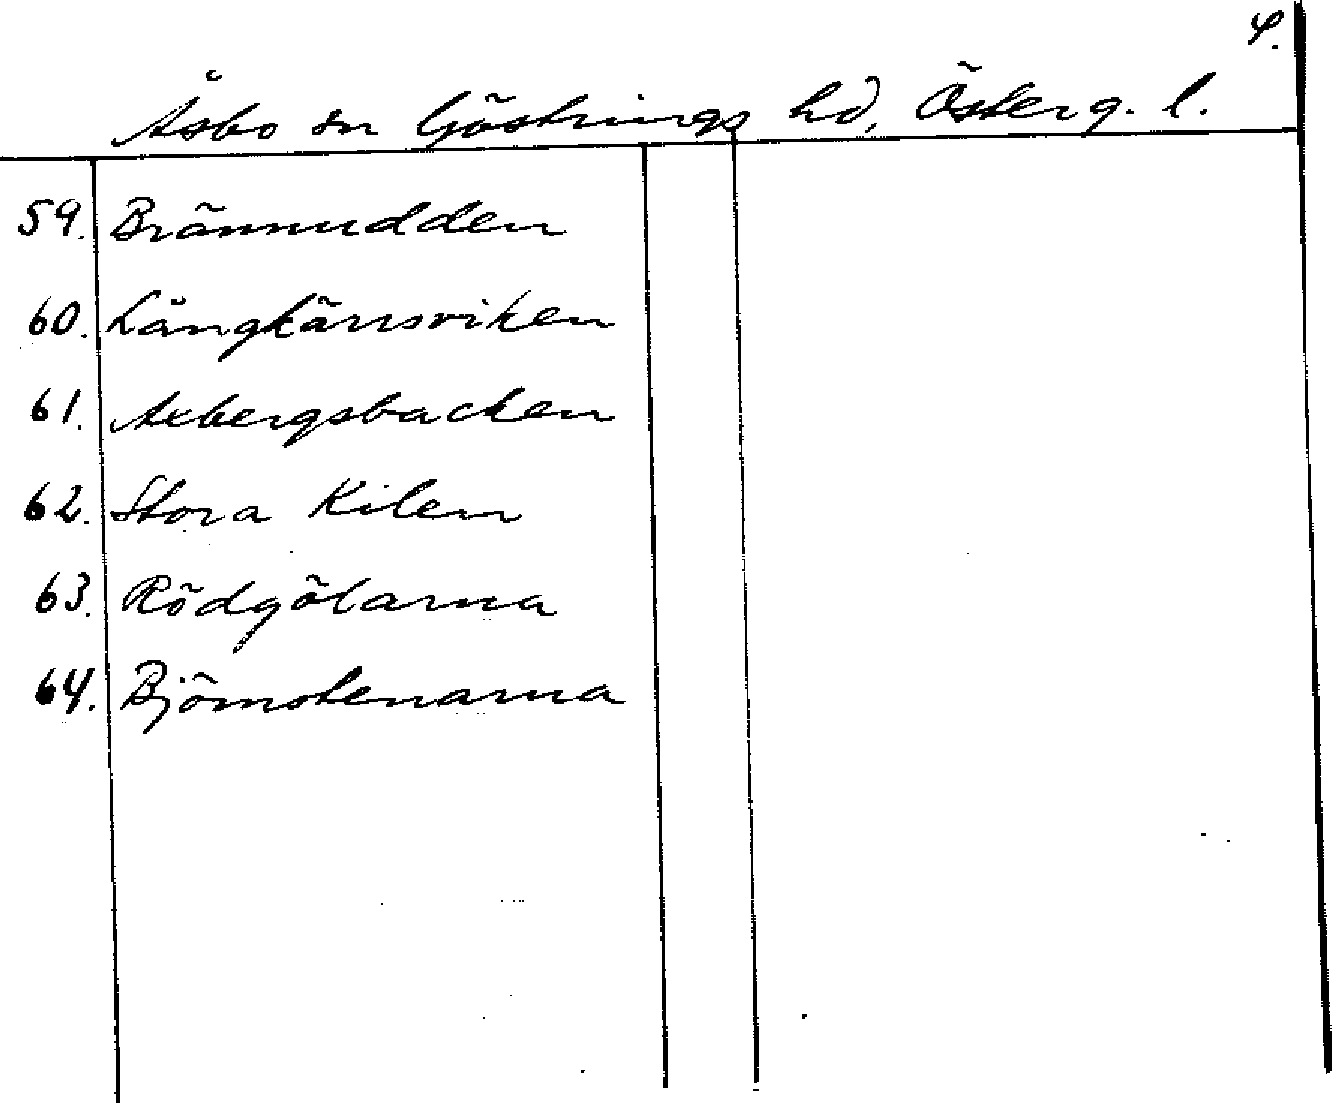 4.
Åsbo sn Göstrings hd, Österg. l.
59. Brännudden
60. Långkärrsviken
61. Axbergsbacken
62. Stora Kilen
63. Rödgölarna
64. Björnstenarna